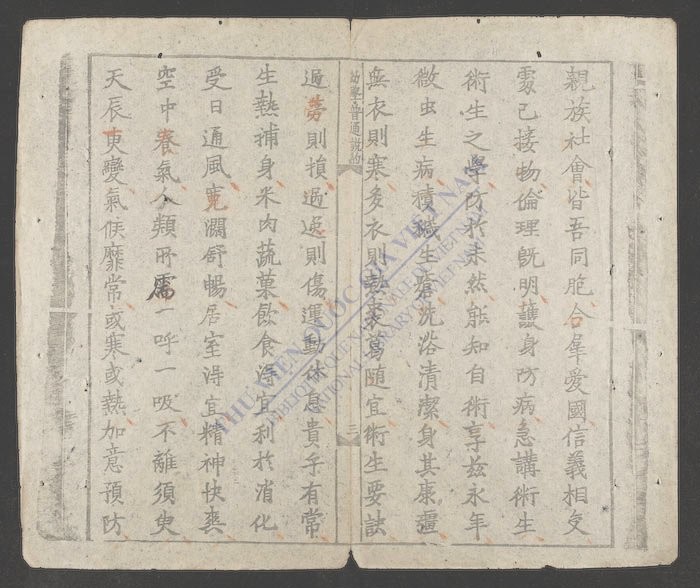 親族社會皆吾同胞合羣愛國信義相交
處己接物倫理既明護身防病急講術生
術生之學防於未然能知自術享兹永年
微虫生病積穢生瘡洗浴清潔身其康疆
無衣則寒多衣則熱裘葛隨宜術生要訣
幼學普通説約
三
過勞則損過逸則傷運動休息貴乎有常
生熱補身米肉蔬菓飲食淂宜利於消化
受日通風寬濶舒暢居室淂宜精神快爽
空中養氣人類所需一呼一吸不離須臾
天辰更變氣候靡常或寒或熱加意預防
THƯ VIỆN QUỐC GIA VIỆT NAM
BIBLIOTHEQUE NATIONALE DU VIETNAM
NATIONAL LIBRARY OF VIETNAM